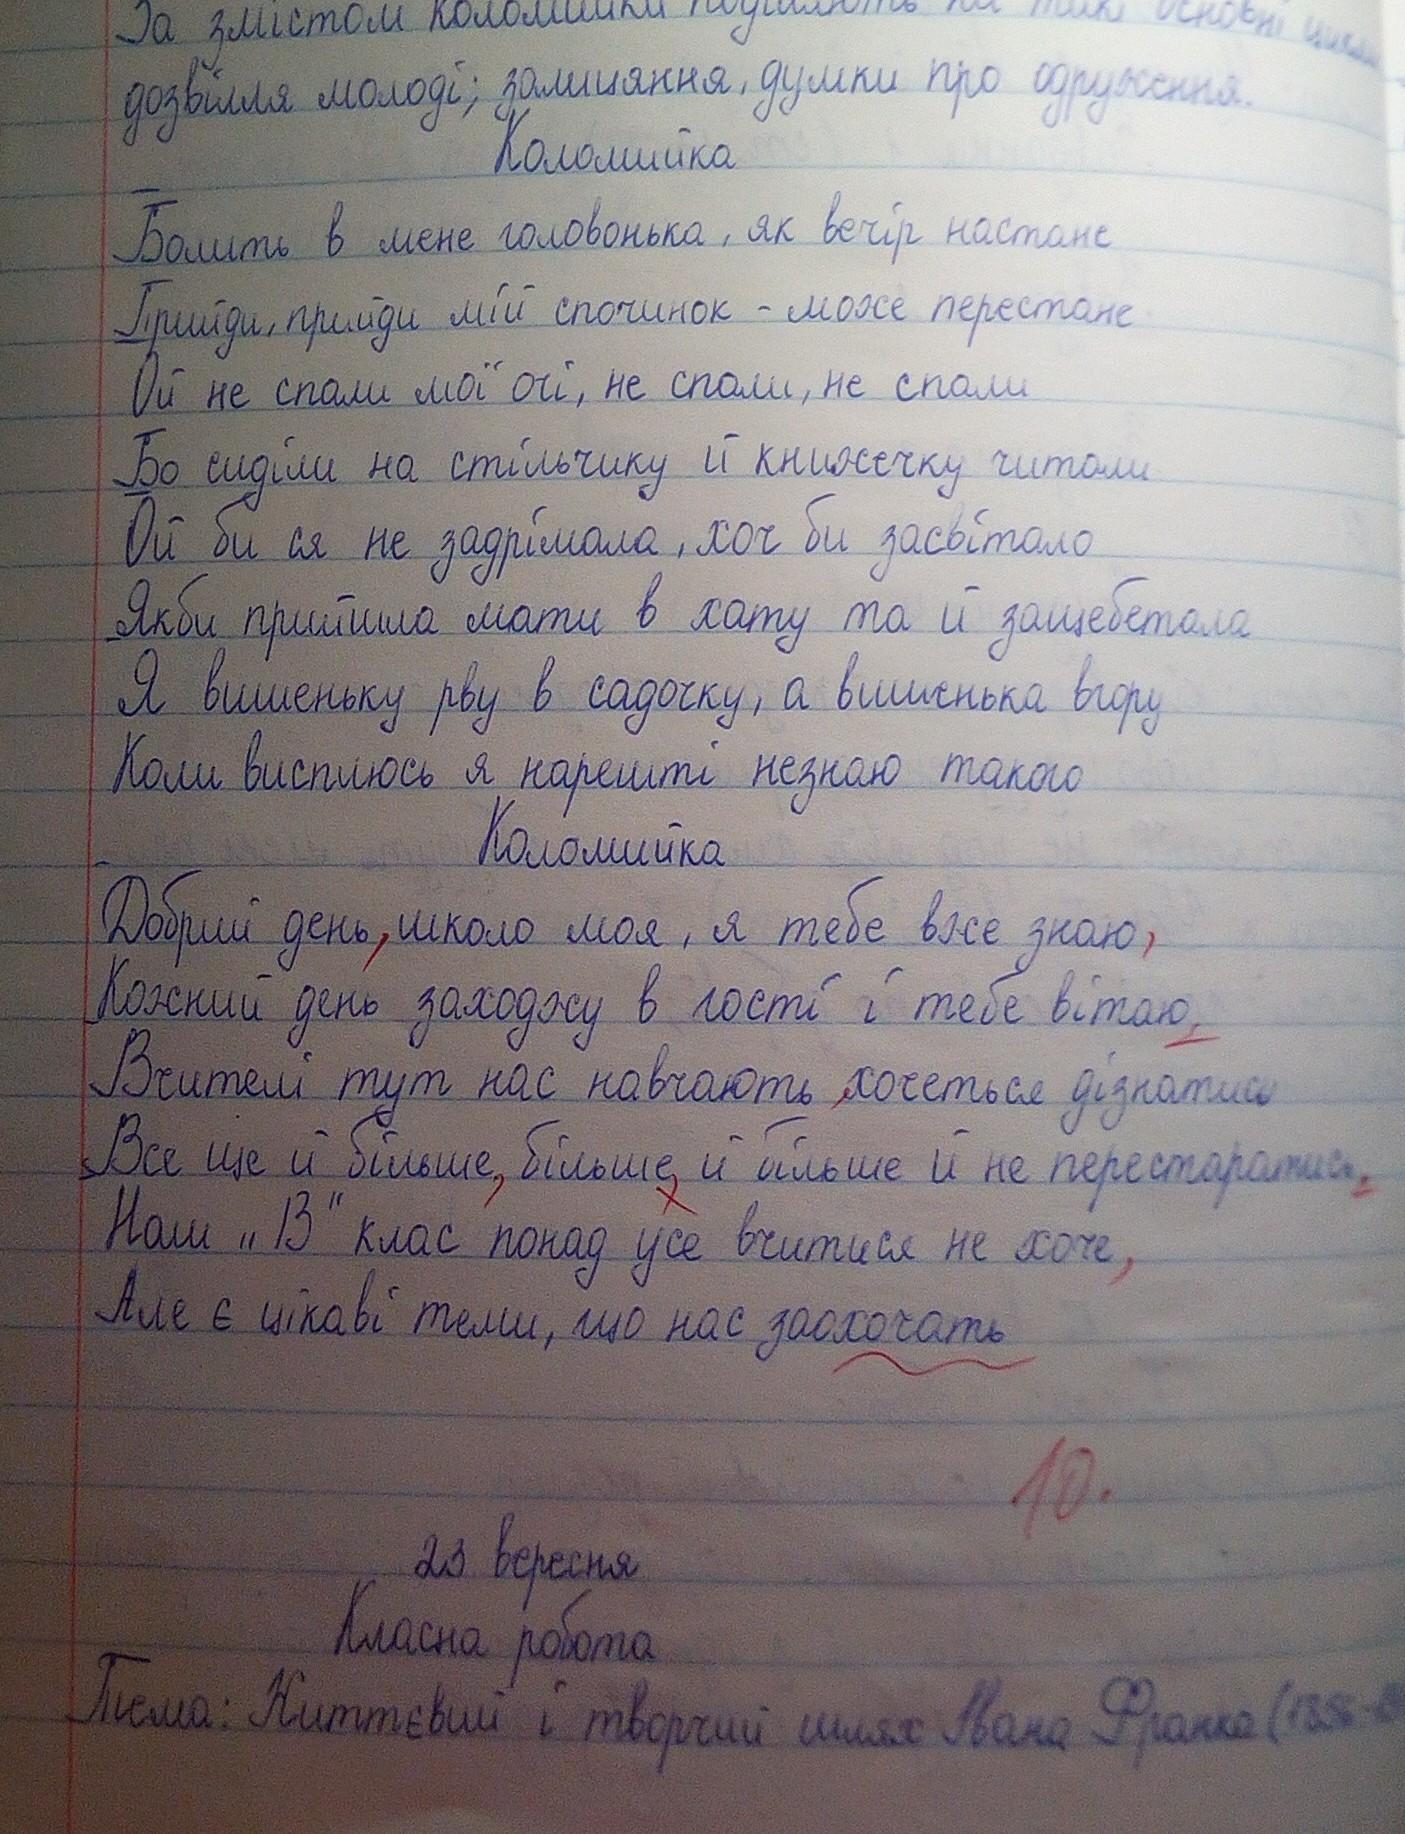 За змістом коломийки поділяють на такі основні цикли
дозвілля молоді; залицяння, думки про одруження.
Коломийка
Болить в мене головонька, як вечір настане
Прийди, прийди мій спочинок - може перестане
Ой не спали мої очі, не спали, не спали
Бо сиділи на стільчику й книжечку читали
Ой би ся не задрімала, хоч би засвітало
Якби прийшла мати в хату та й защебетала
Я вишеньку рву в садочку, а вишенька вгору
Коли висплюсь я нарешті незнаю такого
Коломийка
Добрий день, школо моя, я тебе вже знаю,
Кожний день заходжу в гості і тебе вітаю,
Вчителі тут нас навчають, хочеться дізнатись
Все ще й більше, більше, й більше й не перестаратись.
Наш „В" клас понад усе вчитися не хоче,
Але є цікаві теми, що нас заохочать
10.
23 вересня
Класна робота
Тема: Життєвий і творчий шлях Івана Франка (1856-